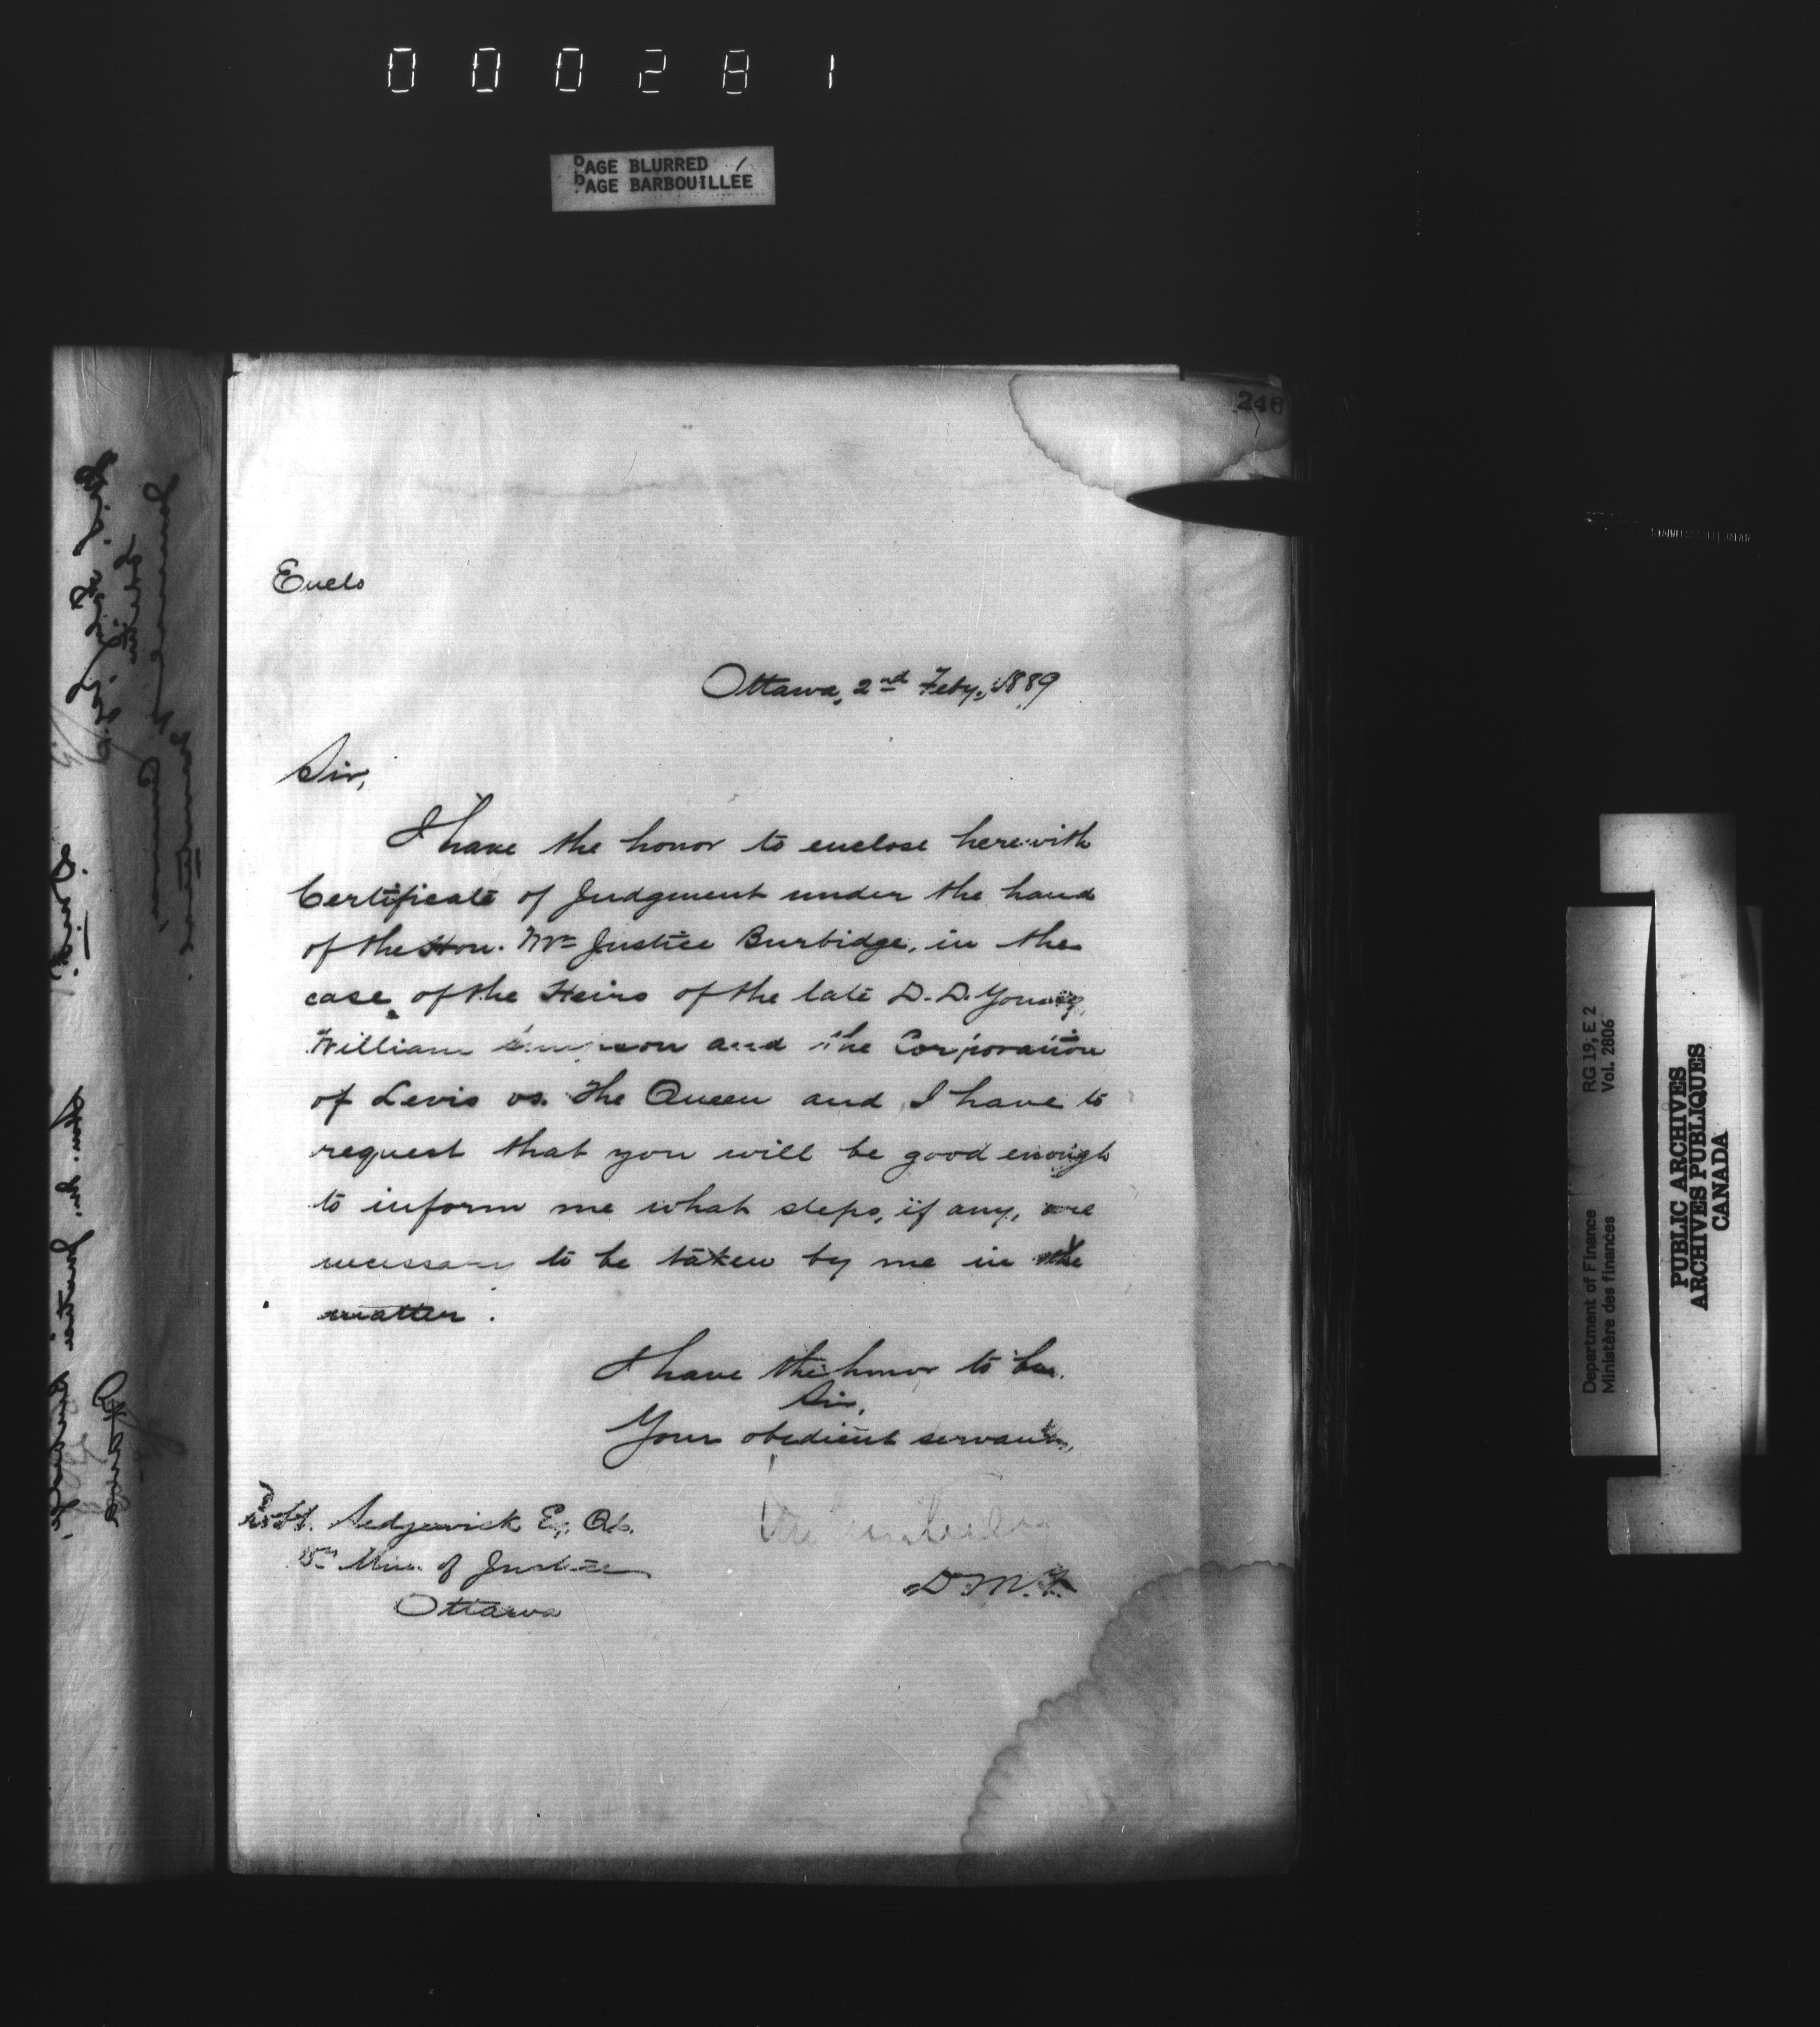 000281
PAGE BLURRED
PAGE BARBOUILLÉE
246
Encls
Ottawa, 2nd Feby, 1889
Sir,
I have the honor to enclose herewith
Certificate of Judgment under the hand
of the Hon. Mr Justice Burbidge, in the
case of the Heirs of the late D. D. Young,
William and the Corporation
of Levis vs. The Queen and I have to
request that you will be good enough
to inform me what steps, if any, are
necessary to be taken by me in the
matter.
I have the honor to be.
Sir,
Your obedient servant,
Robt. Sedgewick Esq. Q.C.
Dy Min. of Justice
Ottawa
D.M.F.
Department of Finance
Ministère des finances
RG 19, E 2
Vol. 2806
PUBLIC ARCHIVES
ARCHIVES PUBLIQUES
CANADA